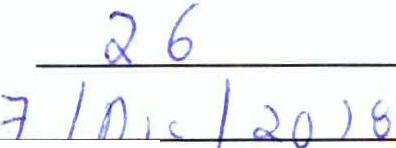 26
7/Dic/2018